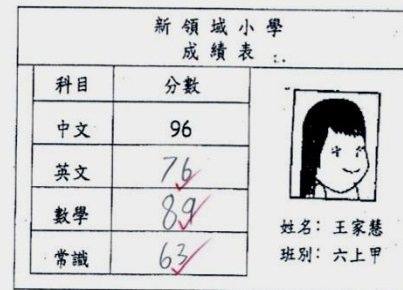 新領域小學
成績表
科目 分數
中文 96
英文 76
數學 89
常識 63
姓名：王家慧
班別：六上甲